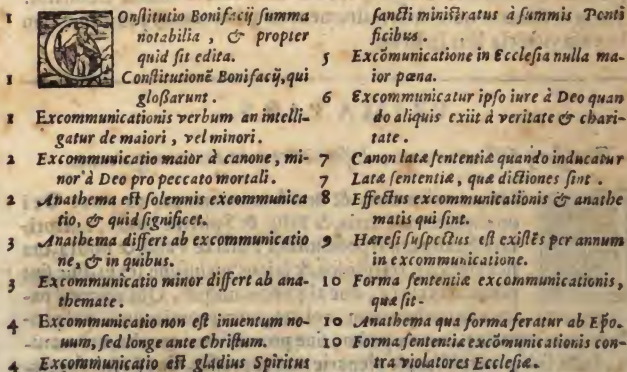 1 COnstitutio Bonifacij summa
notabilia, & propter
quid sit edita.
1 Constitutionē Bonifacij, qui
gloßarunt.
1 Excommunicationis verbum an intelli-
gatur de maiori, vel minori.
2 Excommunicatio maior à canone, mi-
nor à Deo pro peccato mortali.
2 Anathema est solemnis exeommunica
tio, & quid significet.
3 Anathema differt ab excommunicatio
ne, & in quibus.
3 Excommunicatio minor differt ab ana-
themate.
4 Excommunicatio non est inuentum no-
uum, sed longe ante Christum.
4 Excommunicatio est gladius Spiritus
sancti ministratus à summis Ponti
ficibus.
5 Excōmunicatione in Ecclesia nulla ma-
ior pœna.
6 Excommunicatur ipso iure à Deo quan
do aliquis exiit à veritate & chari-
tate.
7 Canon latæ sententiæ quando inducatur
7 Latæ sententiæ, quæ dictiones sint.
8 Effectus excommunicationis & anathe
matis qui sint.
9 Hæresi suspectus est existēs per annum
in excommunicatione.
10 Forma sententiæ excommunicationis,
quæ sit-
10 Anathema qua forma feratur ab Epō.
10 Forma sententiæ excōmunicationis con-
tra violatores Ecclesiæ.